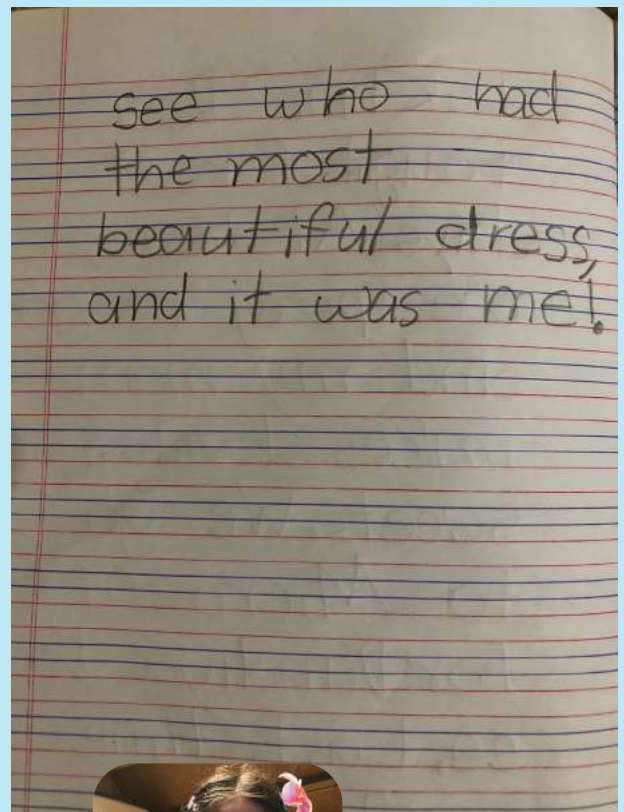 see who had
the most
beautiful dress,
and it was me!